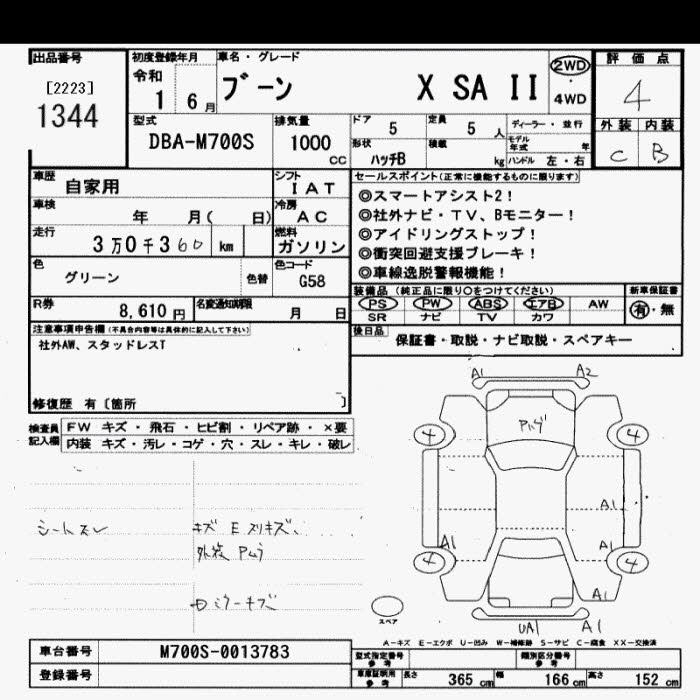 出品番号 初度登録年月 車名・グレード 評価点
[2223] 令和 ブーン X SA II 2WD 4
1344 1 6月 ・4WD
型式 排気量 ドア 5 定員 5人 ディーラー・並行 外装 内装
DBA-M700S 1000 cc 形状 ハッチB 積載 kg モデル年式 年 C B
ハンドル 左・右
車歴 自家用 シフト IAT セールスポイント(正常に機能するものに限ります)
車検 年 月( 日) 冷房 AC ◎スマートアシスト2!
◎社外ナビ・TV、Bモニター!
走行 3万0千360 km 燃料 ガソリン ◎アイドリングストップ!
◎衝突回避支援ブレーキ!
色 グリーン 色替 色コード G58 ◎車線逸脱警報機能!
装備品(純正品に限り○をつけてください) 新車保証書
R券 8,610円 名変通知期限 月 日 PS PW ABS エアB AW 有・無
SR ナビ TV カワ
注意事項申告欄(不具合内容等は具体的に記入して下さい) 後日品 保証書・取説・ナビ取説・スペアキー
社外AW、スタッドレスT
修復歴 有〔箇所 〕
A1 A2
検査員記入欄 FW キズ・飛石・ヒビ割・リペア跡・×要
内装 キズ・汚レ・コゲ・穴・スレ・キレ・破レ
Pムラ
4 4
A1
シートスレ キズ E スリキズ、
A1 A1
外装 Pムラ
4 4
A1
ロミラーキズ
スペア
UA1 A1
A-キズ E-エクボ U-凹み W-補修跡 S-サビ C-腐食 XX-交換済
車台番号 M700S-0013783 型式指定番号 参考 類別区分番号 参考
登録番号 車庫証明用 参考 長さ 365 cm 幅 166 cm 高さ 152 cm